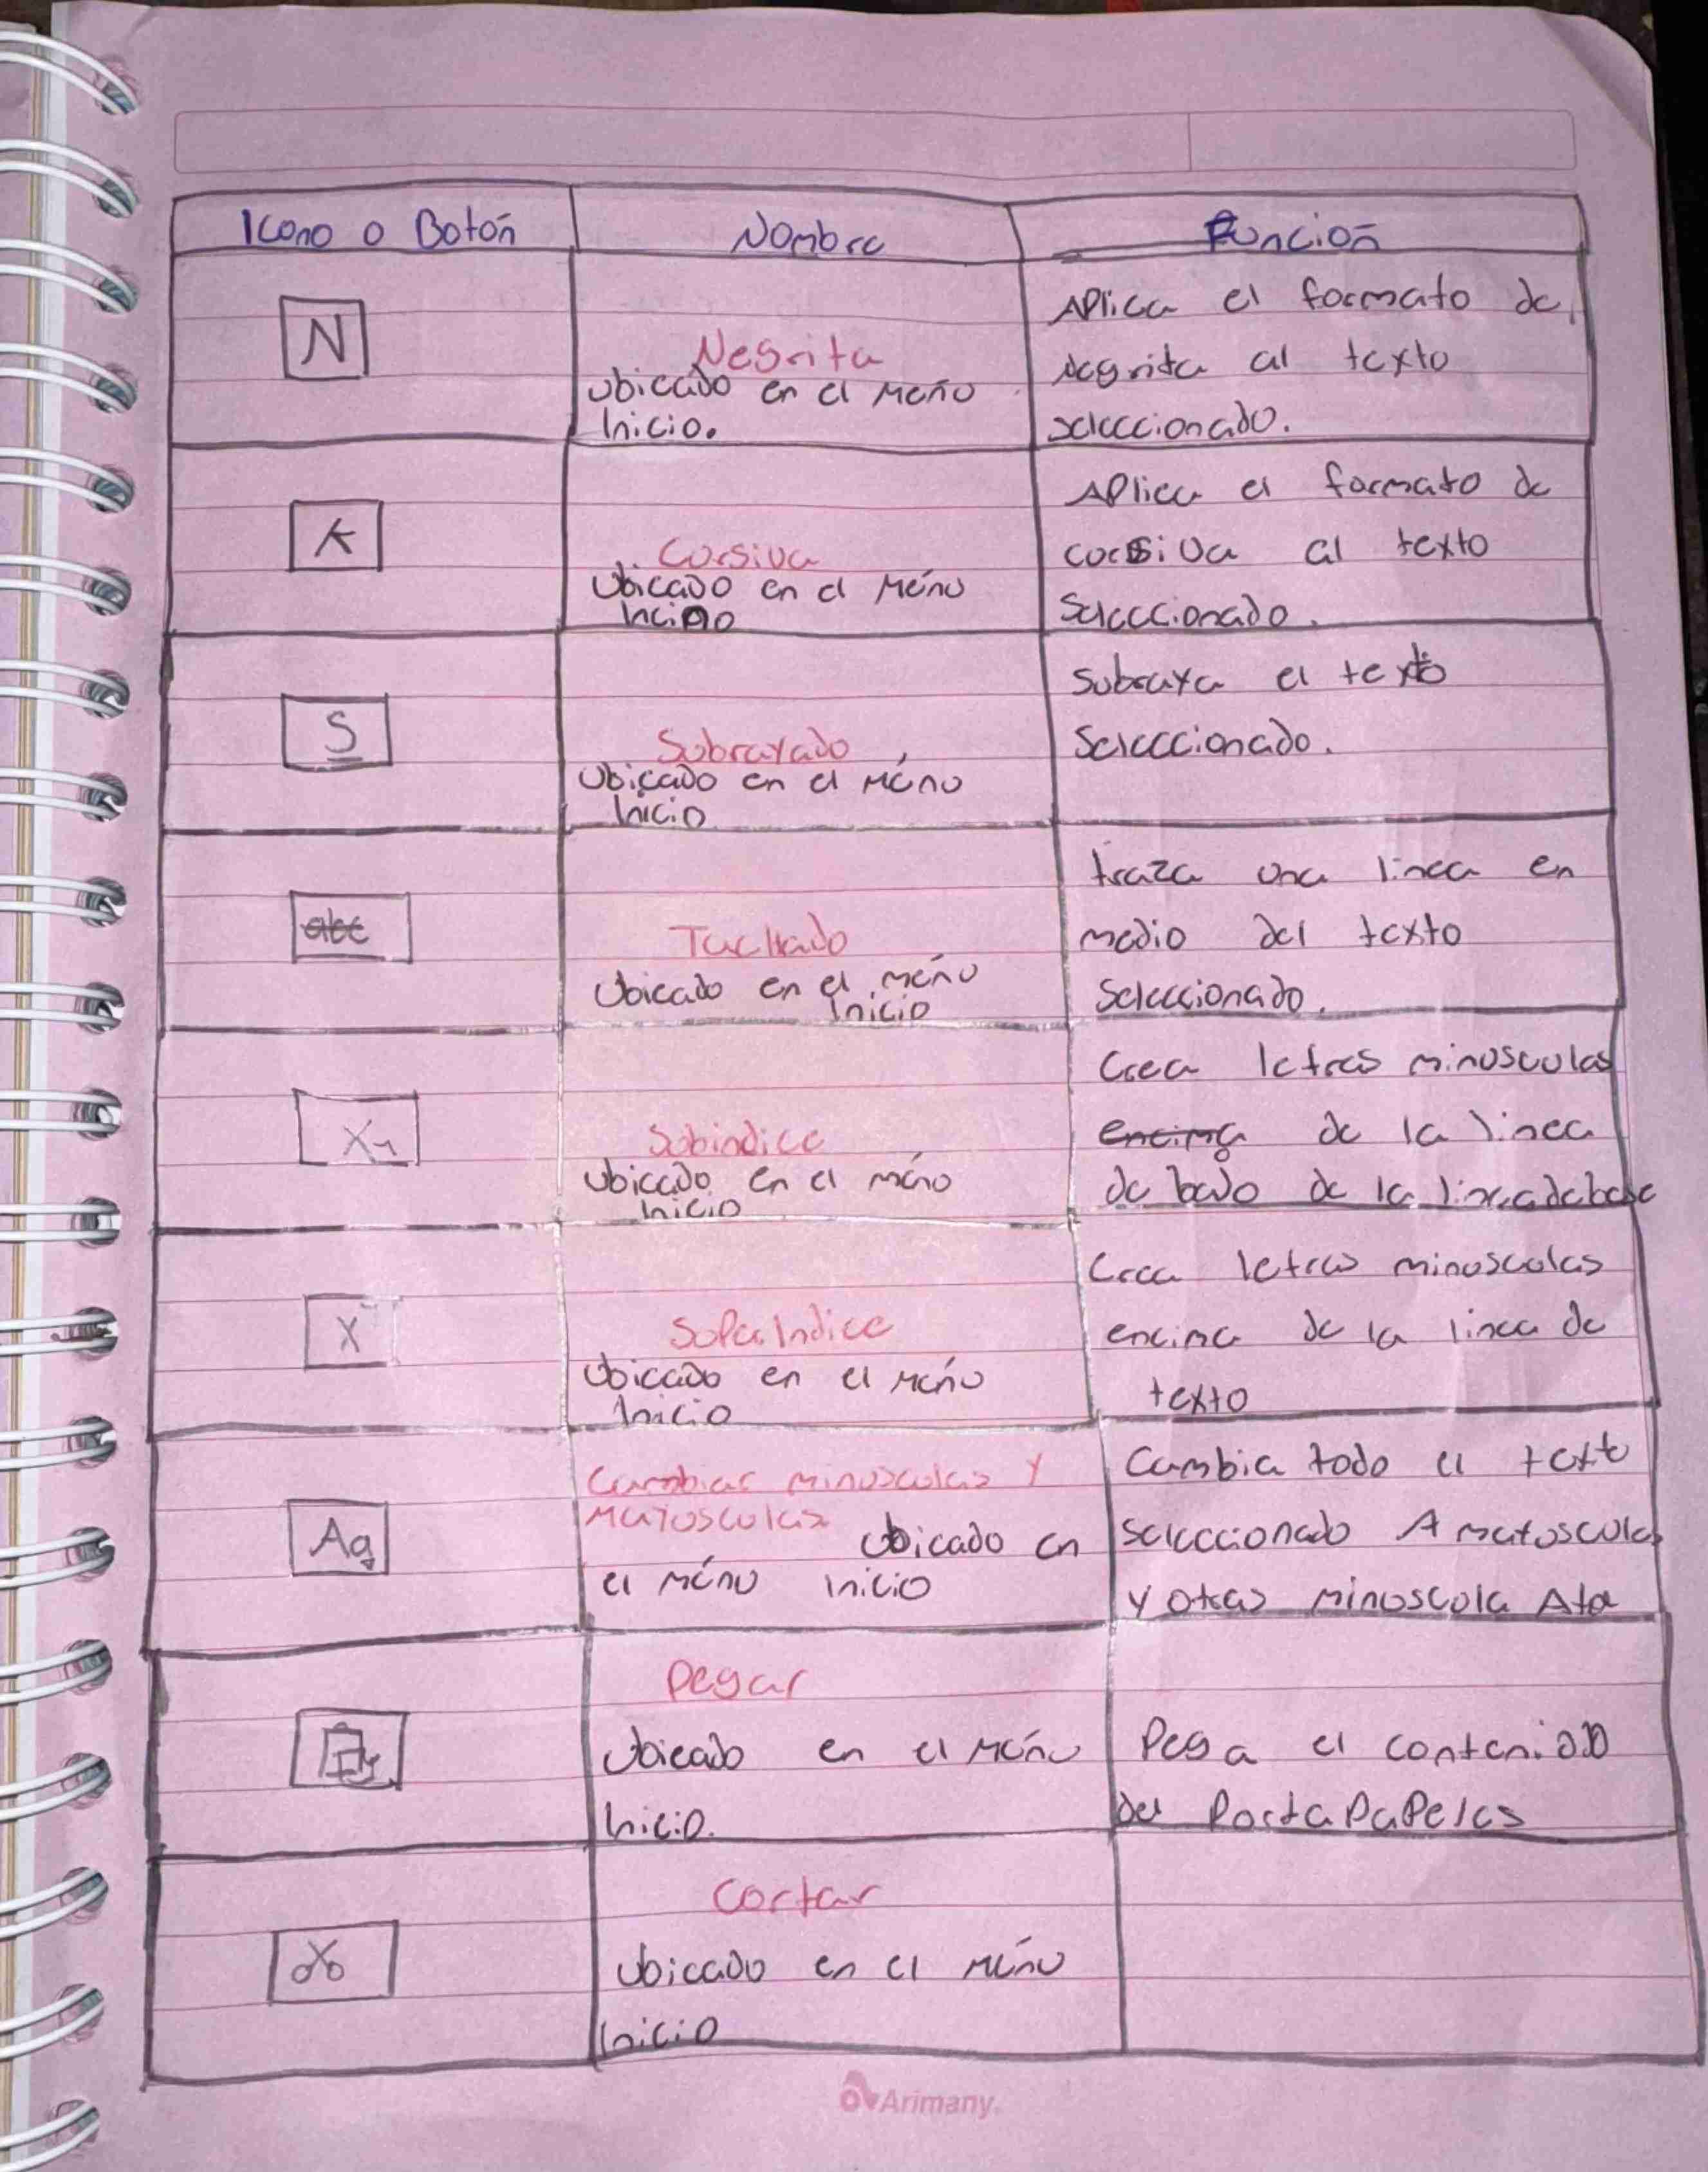 Icono o Botón
Nombre
Función
N
Negrita
Ubicado en el Menú
Inicio.
Aplica el formato de
negrita al texto
seleccionado.
K
Cursiva
Ubicado en el Menú
Aplica el formato de
cursiva al texto
Seleccionado.
S
Subrayado
Ubicado en el Menú
Inicio
Subraya el texto
Seleccionado.
abc
Tachado
Ubicado en el menú
Inicio
traza una linea en
medio del texto
Seleccionado.
X
Subindice
Ubicado en el menú
Inicio
Crea letras minusculas
encima de la linea
de bajo de la linea de base
X
SuperIndice
Ubicado en el Menú
Inicio
Crea letras minusculas
encima de la linea de
texto
Aa
Cambiar minusculas y
Mayusculas Ubicado en
el Menú inicio
Cambia todo el texto
seleccionado A mayusculas
y otras minuscula
Pegar
Ubicado en el Menú
Inicio.
Pega el contenido
del PortaPapeles
Cortar
Ubicado en el Menú
Inicio
Arimany